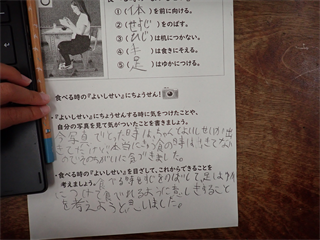 ①(体)を前に向ける。
②(せすじ)をのばす。
③(ひじ)は机につかない。
④(手)は食きにそえる。
⑤(足)はゆかにつける。
食べる時の『よいしせい』にちょうせん!
・『よいしせい』にちょうせんする時に気をつけたことや、
自分の写真を見て気がついたことを書きましょう。
写真でとった時は、ちゃんとよいしせいが出
きてたけど、本当にきゅう食の時は出きてない
・食べる時の『よいしせい』を目ざして、これからできることを
考えましょう。食べる時せすじをのばして、足をゆか
につけて食べれるように
を考えようと